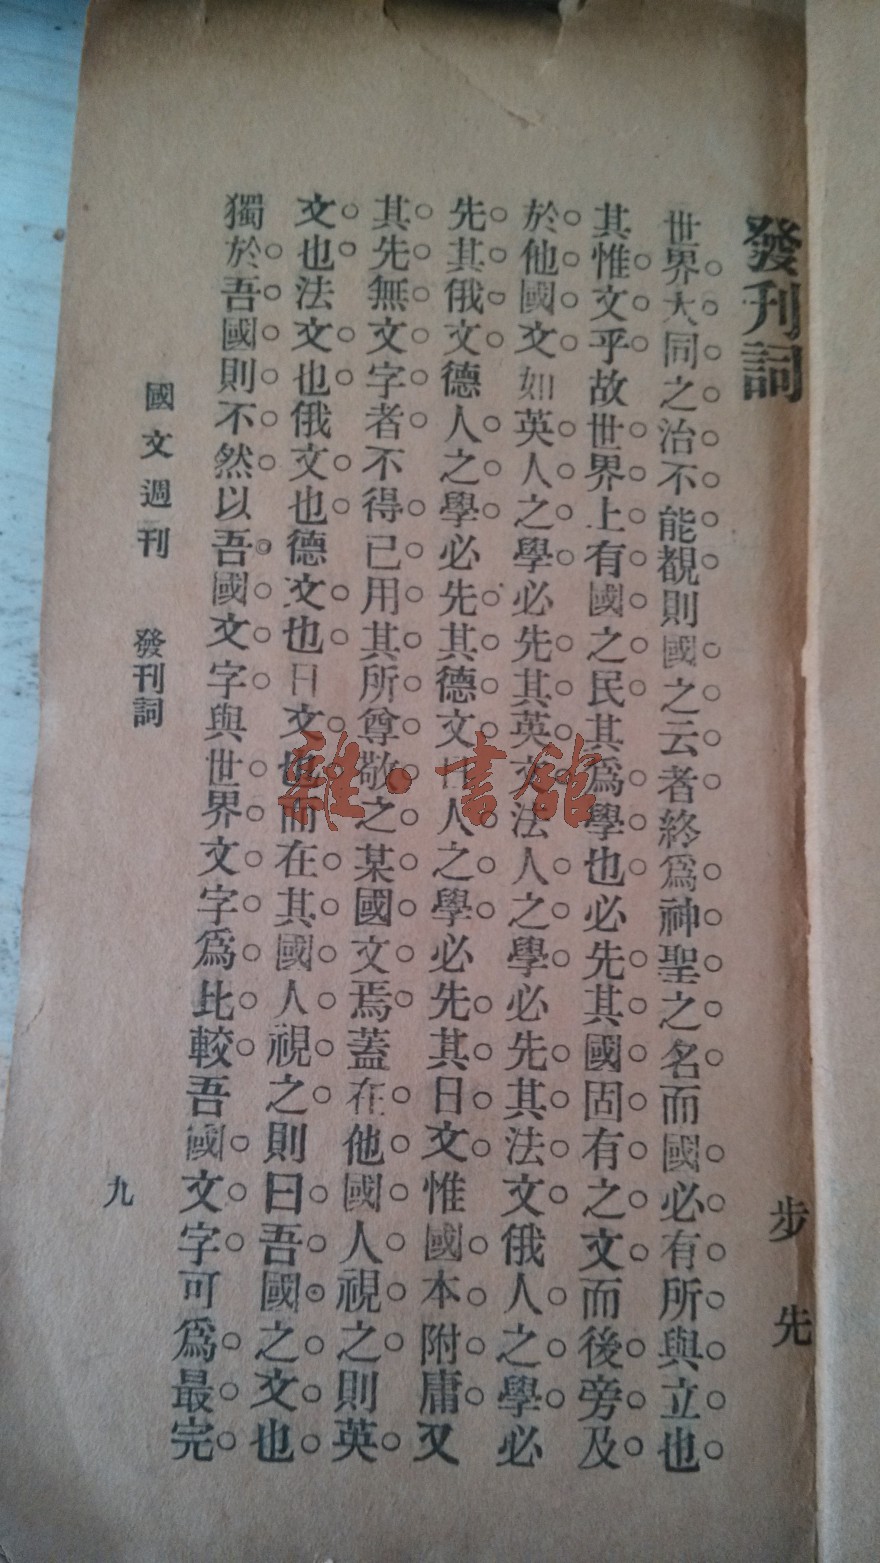 發刊詞
步先
世界大同之治不能覩則國之云者終爲神聖之名而國必有所與立也
其惟文乎故世界上有國之民其爲學也必先其國固有之文而後旁及
於他國文如英人之學必先其英文法人之學必先其法文俄人之學必
先其俄文德人之學必先其德文日人之學必先其日文惟國本附庸又
其先無文字者不得已用其所尊敬之某國文焉蓋在他國人視之則英
文也法文也俄文也德文也日文也而在其國人視之則曰吾國之文也
獨於吾國則不然以吾國文字與世界文字爲比較吾國文字可爲最完
國文週刊 發刊詞
九
雜·書館